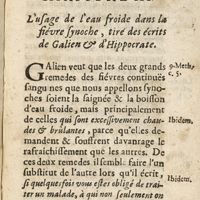 L'usage de l'eau froide dans la
fiévre synoche, tiré des écrits
de Galien & d'Hippocrate.
GAlien veut que les deux grands
remedes des fiévres continuës
sanguines que nous appellons syno-
ches soient la saignée & la boisson
d'eau froide, mais principalement
de celles qui sont excessivement chau-
des & brulantes, parce qu'elles de-
mandent & souffrent davantage le
rafraîchissement que les autres. De
ces deux remedes il semble faire l'un
substitut de l'autre lors qu'il écrit,
si quelquefois vous estes obligé de trai-
ter un malade, à qui non seulement on
9. Meth.
c. 5.
Ibidem.
Ibidem.